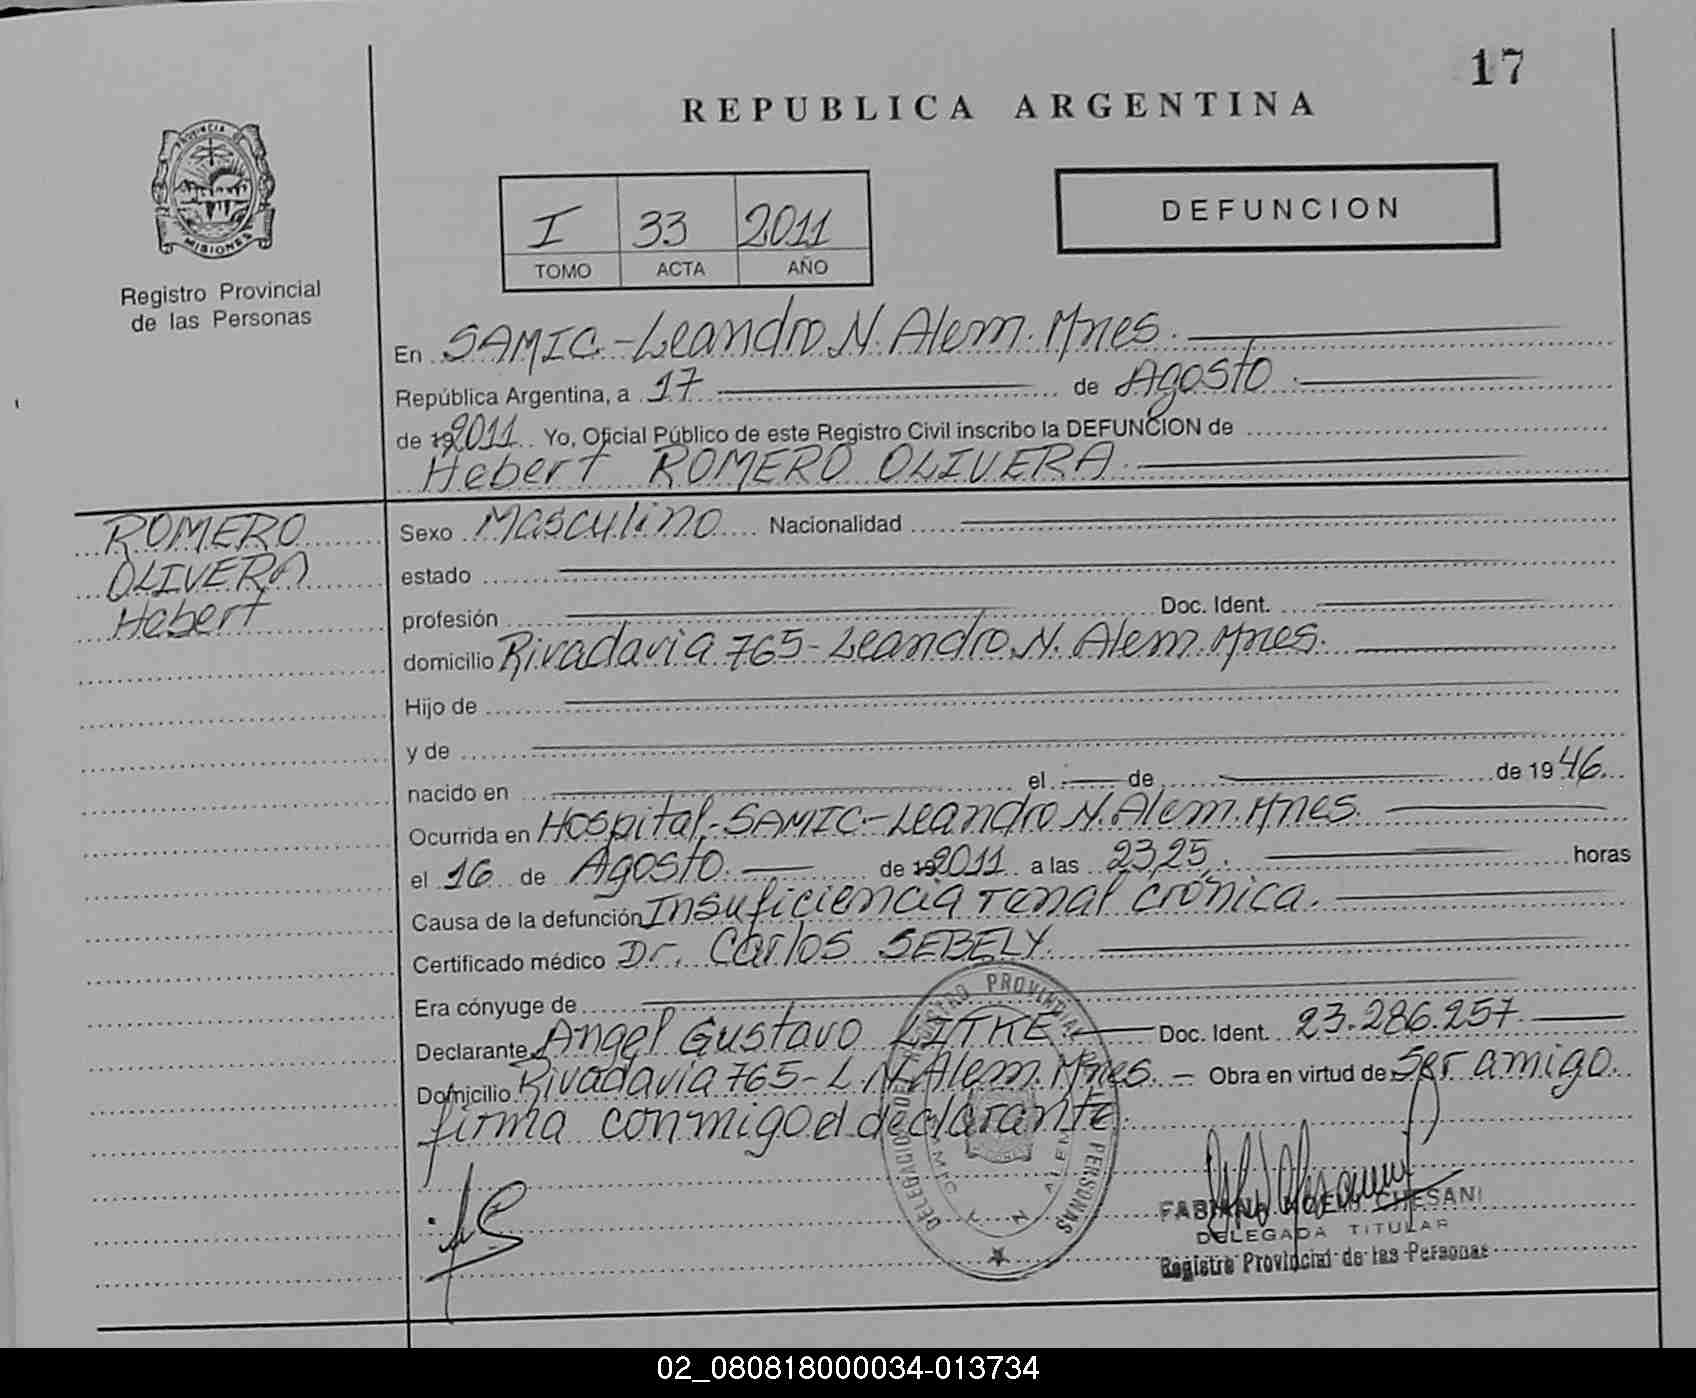 17
REPUBLICA ARGENTINA
PROVINCIA DE
MISIONES
Registro Provincial
de las Personas
I 33 2011
TOMO ACTA AÑO
DEFUNCION
En SAMIC.-Leandro N. Alem. Mnes.
República Argentina, a 17 de Agosto
de 192011 Yo, Oficial Público de este Registro Civil inscribo la DEFUNCION de
Hebert ROMERO OLIVERA.
ROMERO
OLIVERA
Hebert
Sexo Masculino Nacionalidad
estado
profesión Doc. Ident.
domicilio Rivadavia 765-Leandro N. Alem. Mnes.
Hijo de
y de
nacido en el de de 1946
Ocurrida en Hospital-SAMIC-Leandro N. Alem. Mnes.
el 16 de Agosto. de 192011 a las 23,25. horas
Causa de la defunción Insuficiencia renal crónica.
Certificado médico Dr. Carlos SEBELY.
Era cónyuge de
Declarante Angel Gustavo LITKE Doc. Ident. 23.286.257
Domicilio Rivadavia 765-L.N. Alem. Mnes. - Obra en virtud de Ser amigo.
firma conmigo el declarante.
PROVINCIAL
PERSONAS
FABIANA CHESANI
DELEGADA TITULAR
Registro Provincial de las Personas
02_080818000034-013734